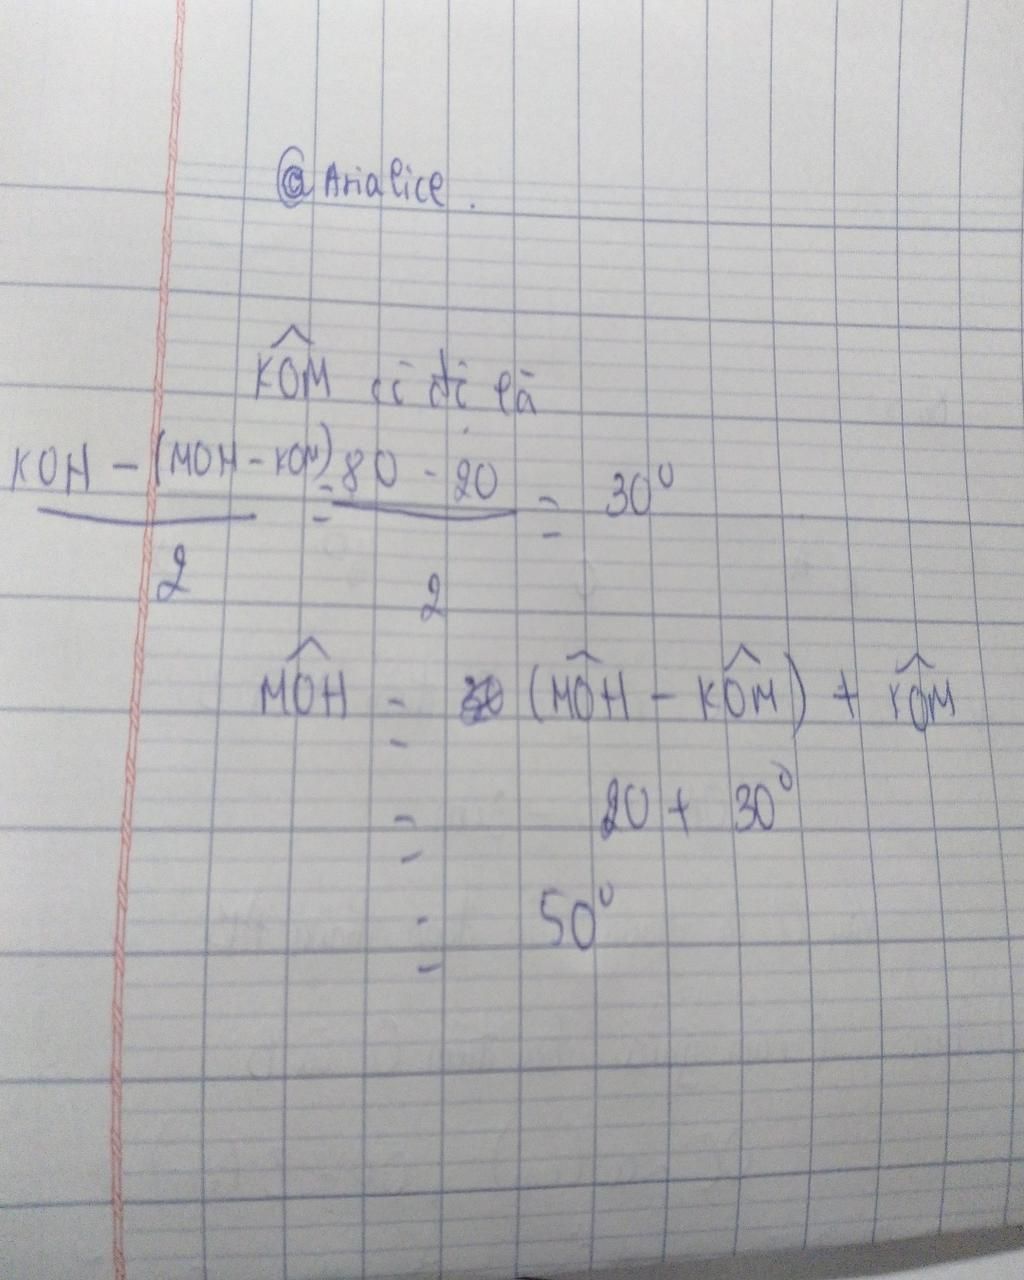 @ Arialice.
KÔM có độ là
KOH - (MOH - KOM) = 80 - 20 = 30⁰
2 2
MÔH = (MÔH - KÔM) + KÔM
= 20 + 30⁰
= 50⁰